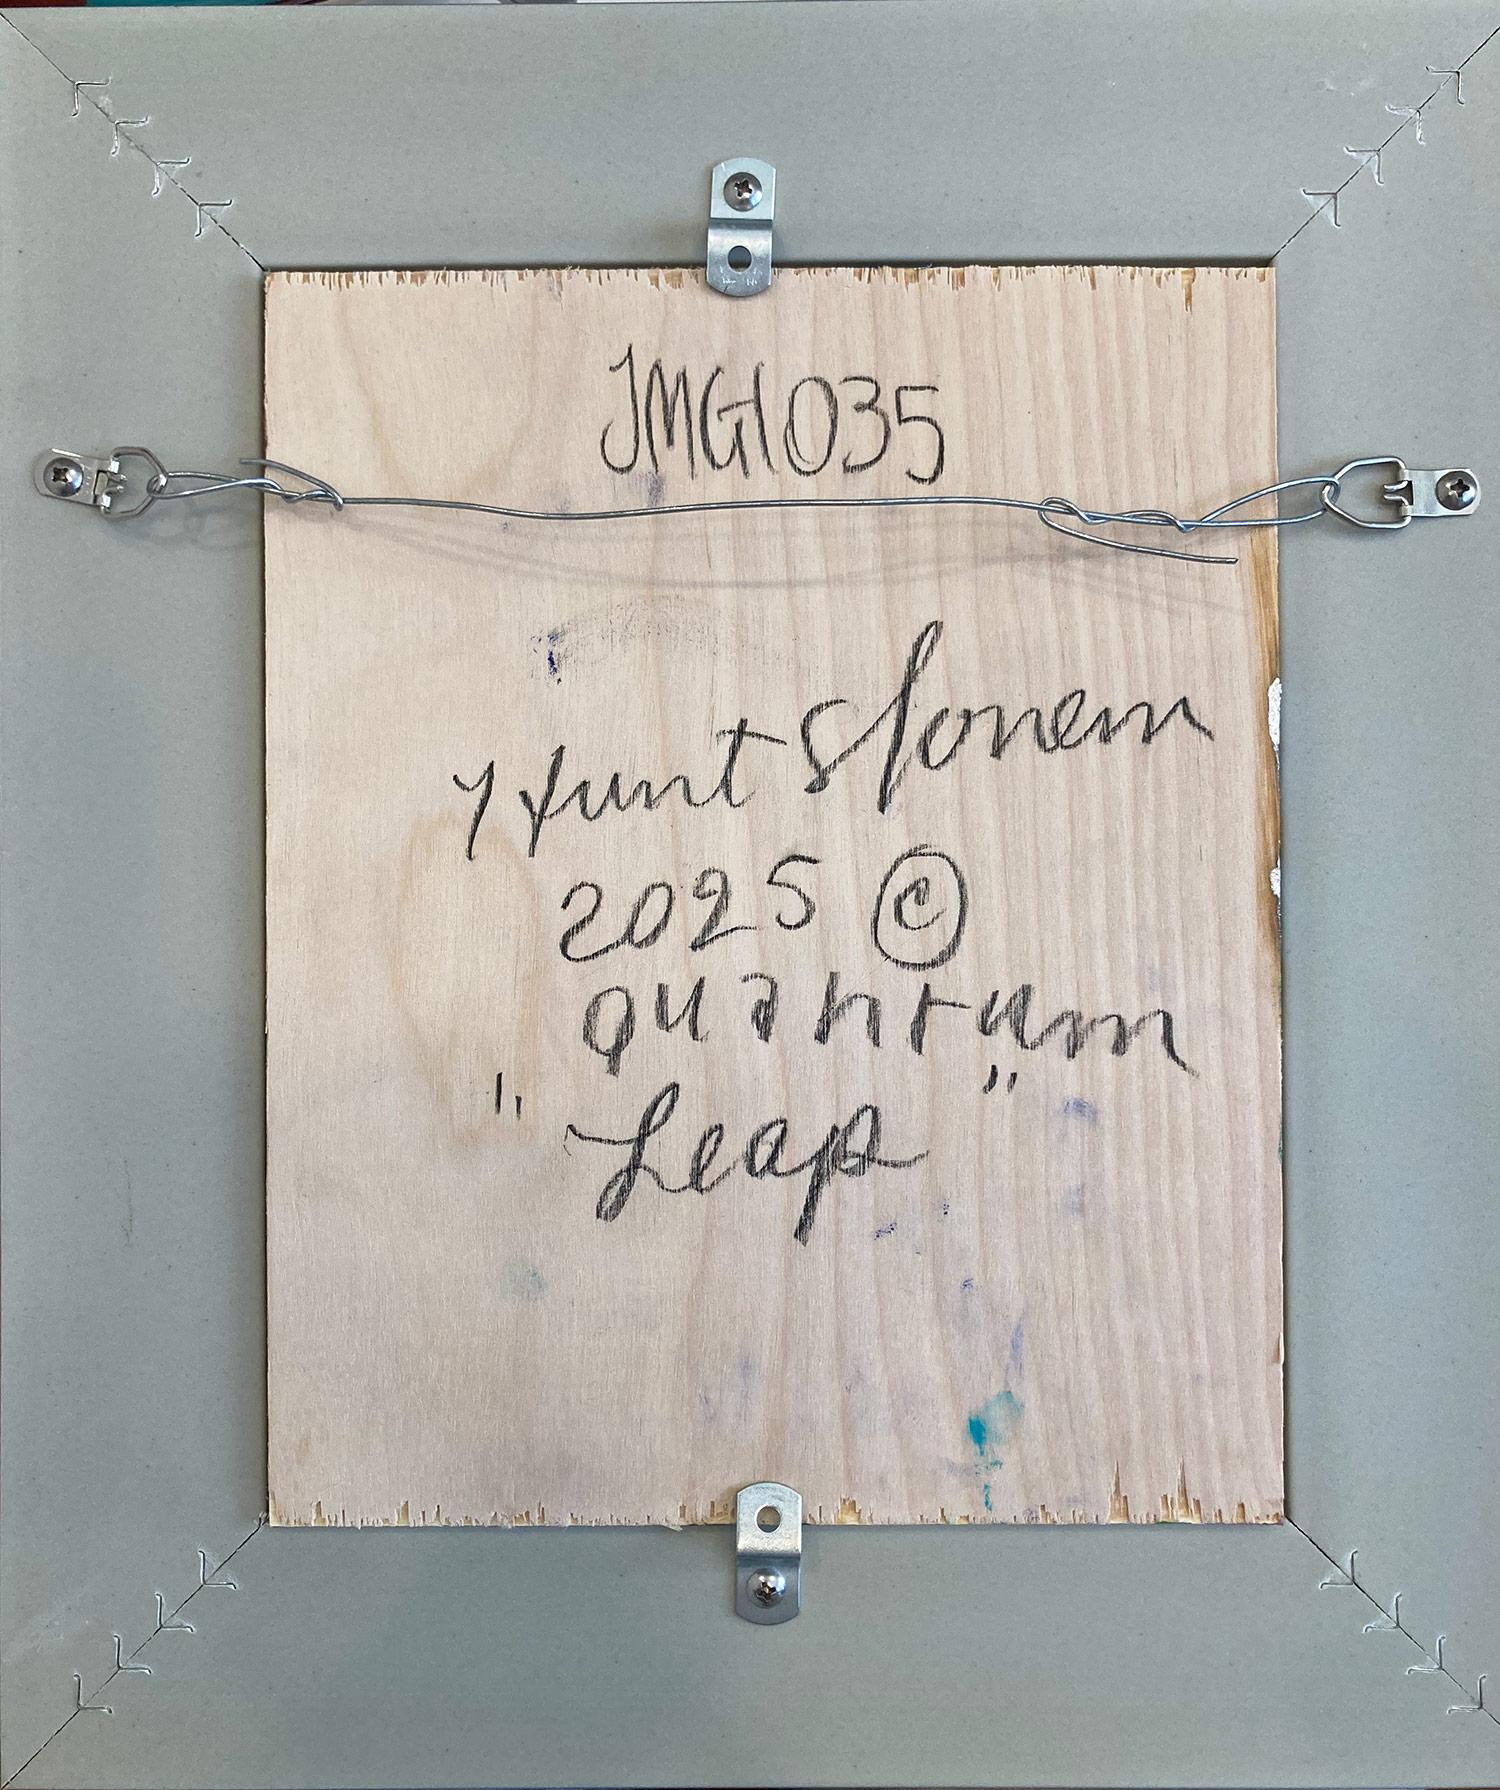 JMG1035
Hunt Slonem
2025 ©
Quantum
"Leap"